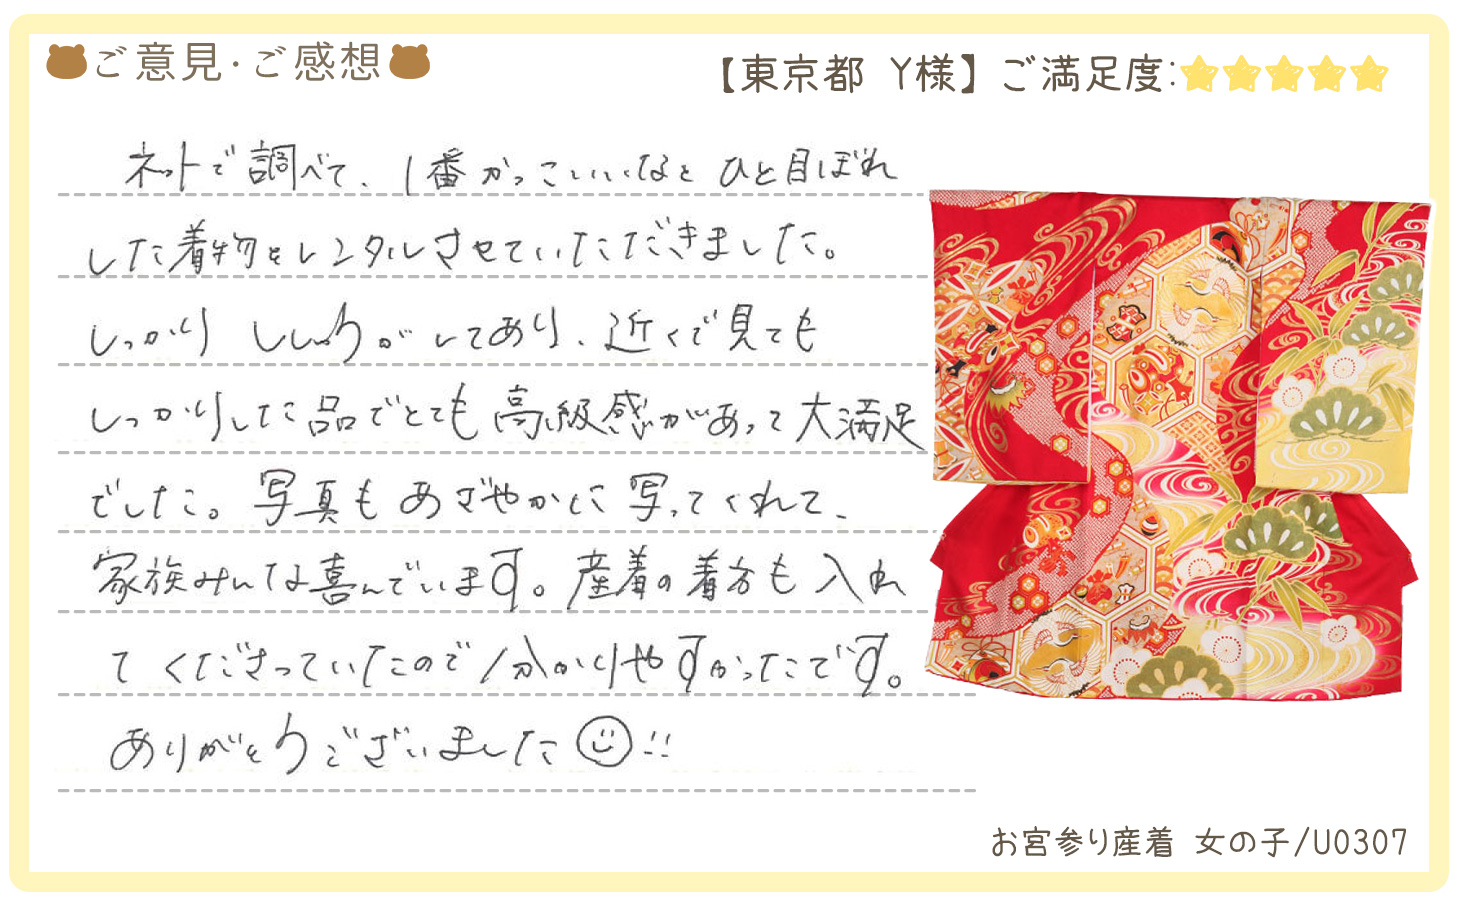 ご意見・ご感想
【東京都 Y様】ご満足度:
ネットで調べて、1番かっこいいなと ひと目ぼれ
した着物をレンタルさせていただきました。
しっかり ししゅうがしてあり、近くで見ても
しっかりした品でとても高級感があって大満足
でした。写真もあざやかに写ってくれて、
家族みんな喜んでいます。産着の着方も入れ
てくださっていたので分かりやすかったです。
ありがとうございました!!
お宮参り産着 女の子/U0307